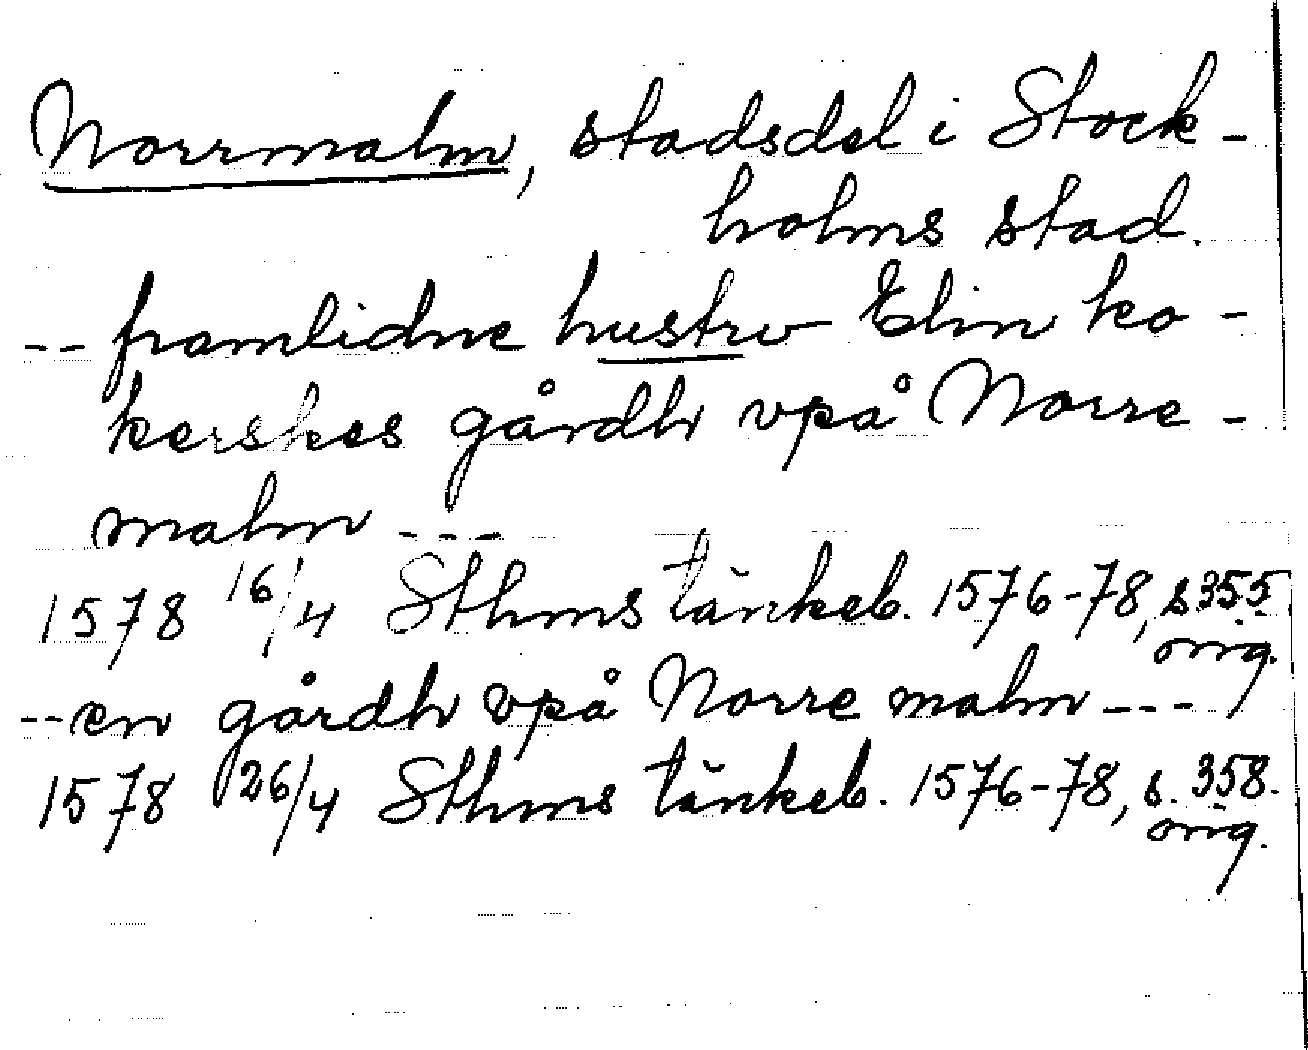 Norrmalm, stadsdel i Stock-
holms stad.
-- framlidne hustrv Elin ko-
kerskes gårdh vpå Norre-
malm ---
1578 16/4 Sthms tänkeb. 1576-78, s 355
orig.
-- en gårdh vpå Norre malm ---
1578 26/4 Sthms tänkeb. 1576-78, s. 358.
orig.